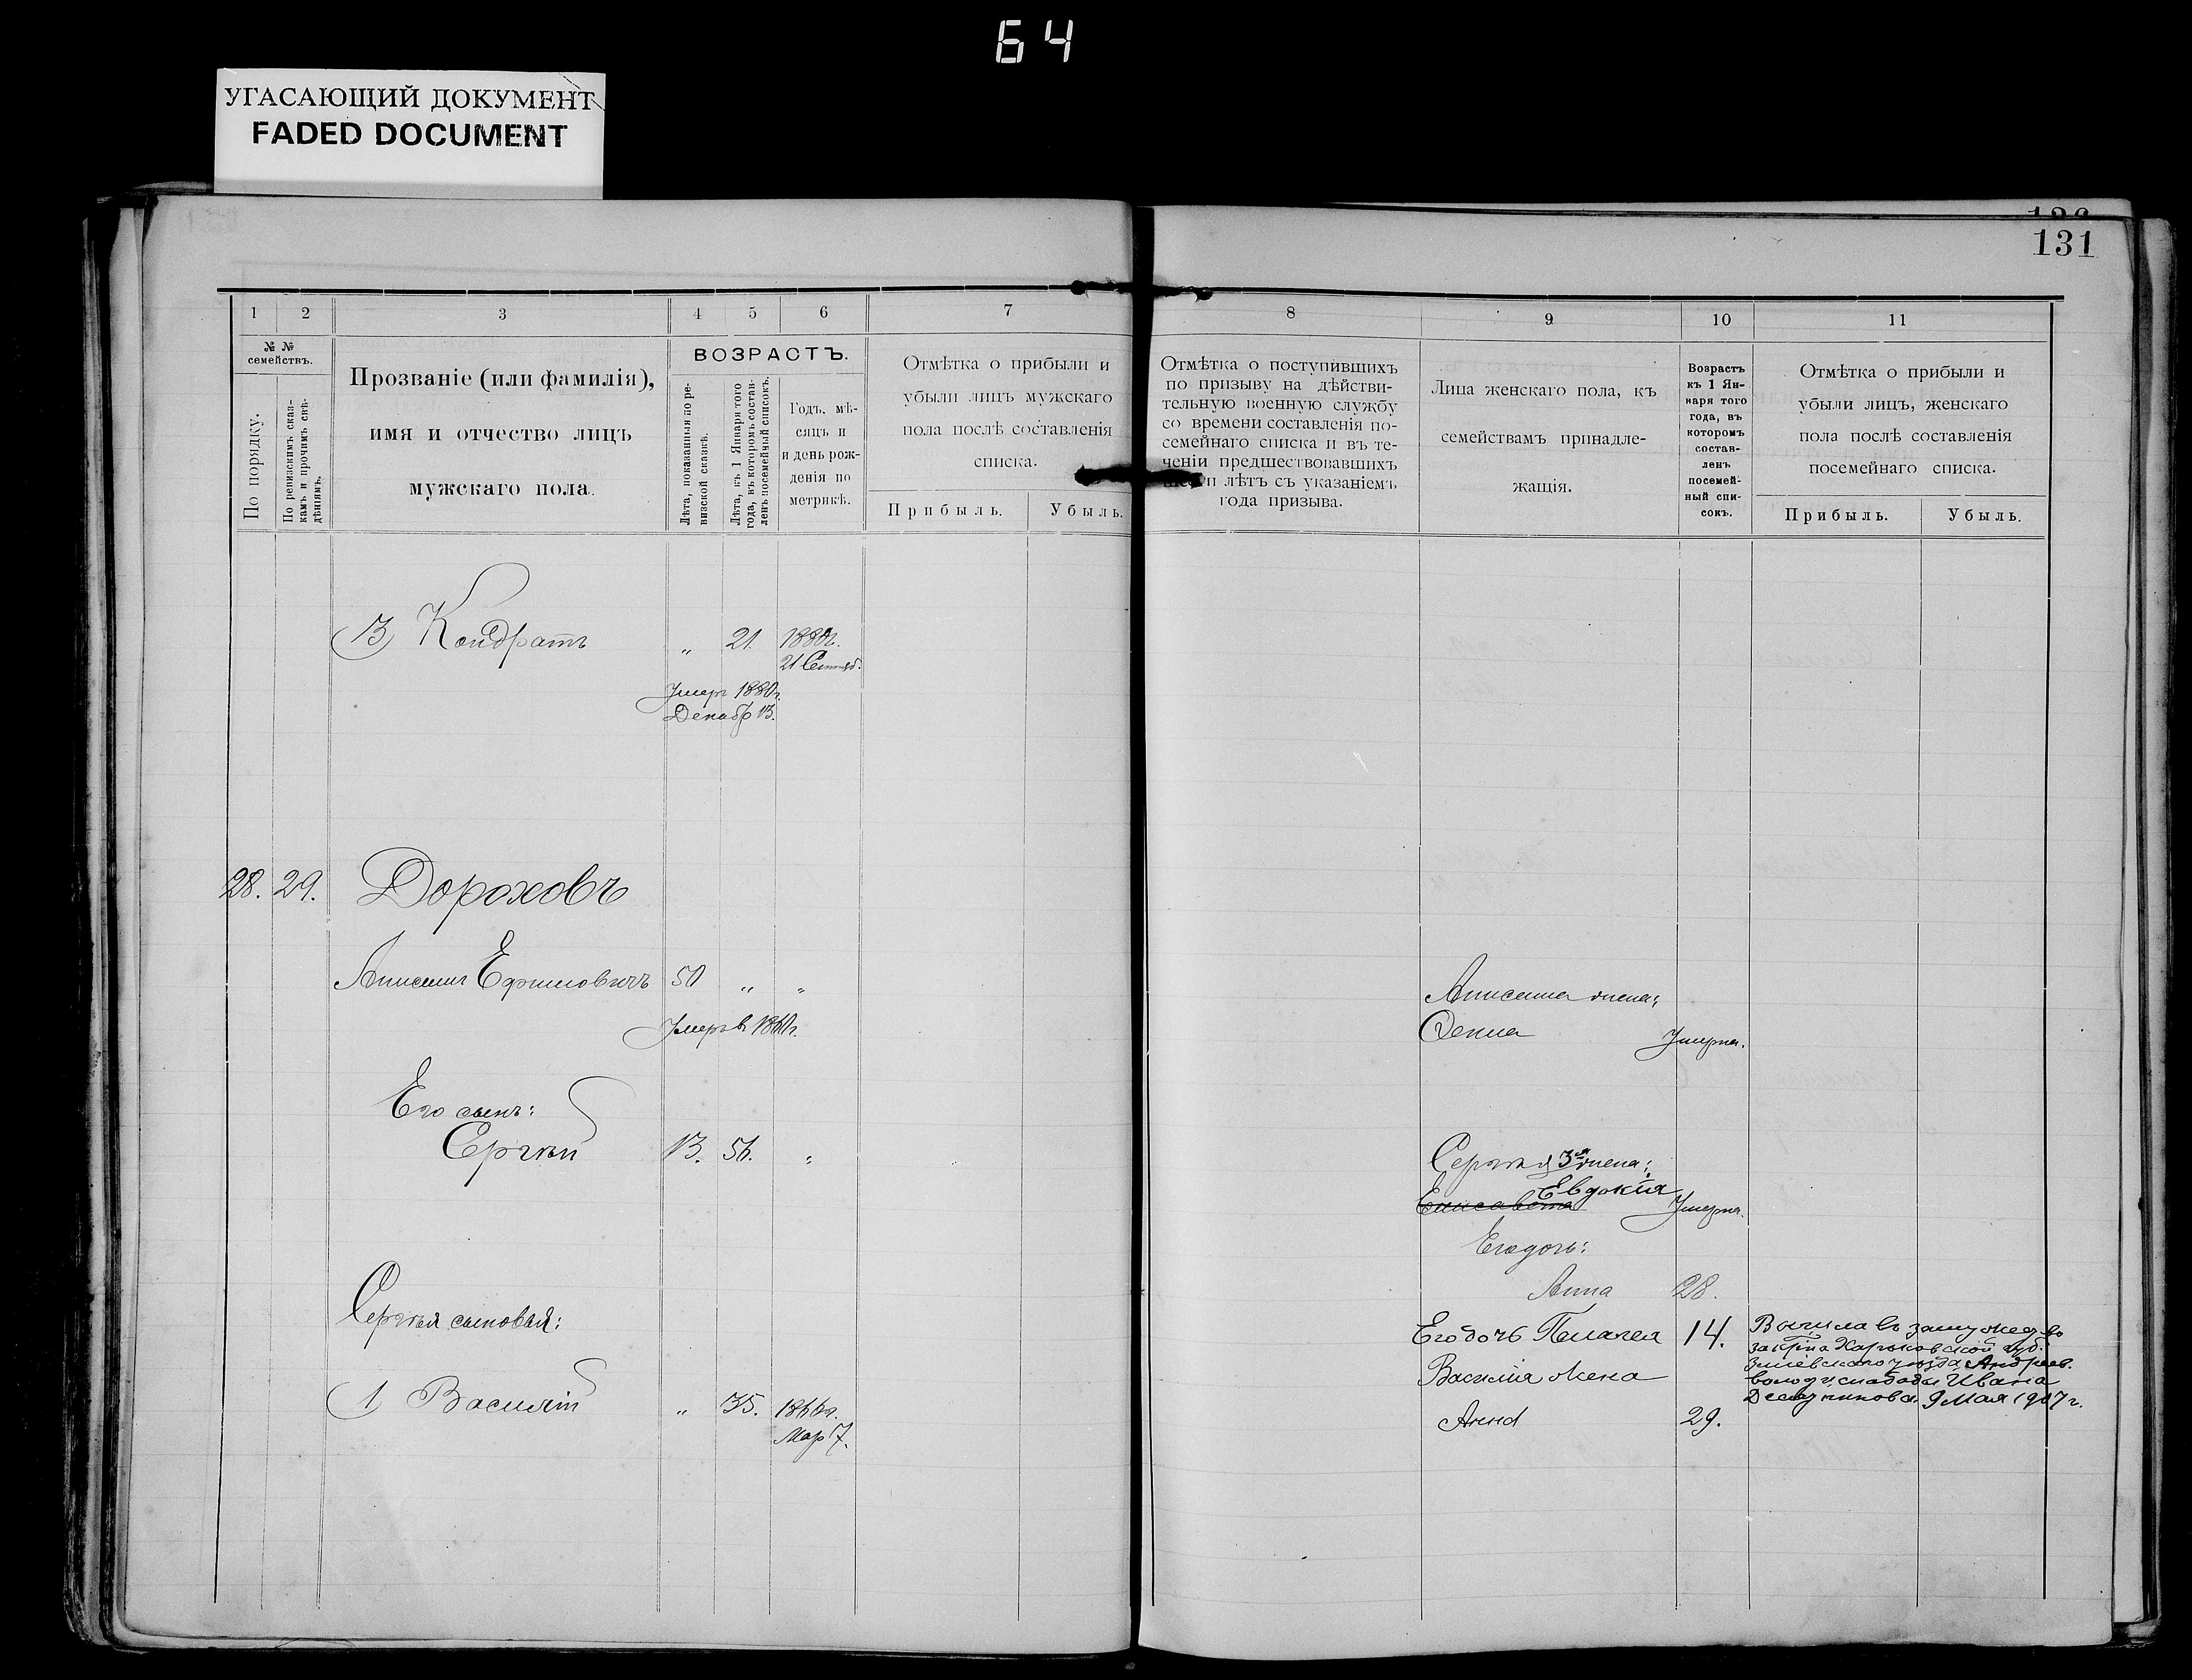 64
УГАСАЮЩИЙ ДОКУМЕНТ
FADED DOCUMENT
131
1 2 3 4 5 6 7
№ №
семействъ.
По порядку.
По ревизскимъ сказ-
камъ и прочимъ свѣ-
дѣніямъ.
Прозваніе (или фамилія),
имя и отчество лицъ
мужскаго пола.
ВОЗРАСТЪ.
Лѣта, показанныя по ре-
визской сказкѣ.
Лѣта, къ 1 Января того
года, въ которомъ состав-
ленъ посемейный списокъ.
Годъ, мѣ-
сяцъ и
и день рож-
денія по
метрикѣ.
Отмѣтка о прибыли и
убыли лицъ мужскаго
пола послѣ составленія
списка.
Прибыль. Убыль.
3) Кондратъ „ 21. 1880г.
21 Сентяб.
Умеръ 1880г.
Декабр 13.
28. 29. Дороховъ
Анисимъ Ефимовичъ 50 „ „
Умеръ в 1860г.
Его сынъ:
Сергѣй 13. 56. „
Сергѣя сыновья:
1) Василій „ 35. 1866г.
Мар 7.
8 9 10 11
Отмѣтка о поступившихъ
по призыву на дѣйстви-
тельную военную службу
со времени составленія по-
семейнаго списка и въ те-
ченіи предшествовавшихъ
лѣтъ съ указаніемъ
года призыва.
Лица женскаго пола, къ
семействамъ принадле-
жащія.
Возрастъ
къ 1 Ян-
варя того
года, въ
которомъ
состав-
ленъ
посемей-
ный спи-
сокъ.
Отмѣтка о прибыли и
убыли лицъ, женскаго
пола послѣ составленія
посемейнаго списка.
Прибыль. Убыль.
Анисима жена:
Умерла.
Сергѣя 3я жена:
Евдокія
Елисавета Умерла.
Его дочь:
Анна 28.
Его дочь Пелагея 14. Вышла въ замужество
за крна Харьковской губ.
Зміевского уѣзда Андреев.
волости, слободы Ивана
9 Мая 1907 г.
Василія жена
Анна 29.